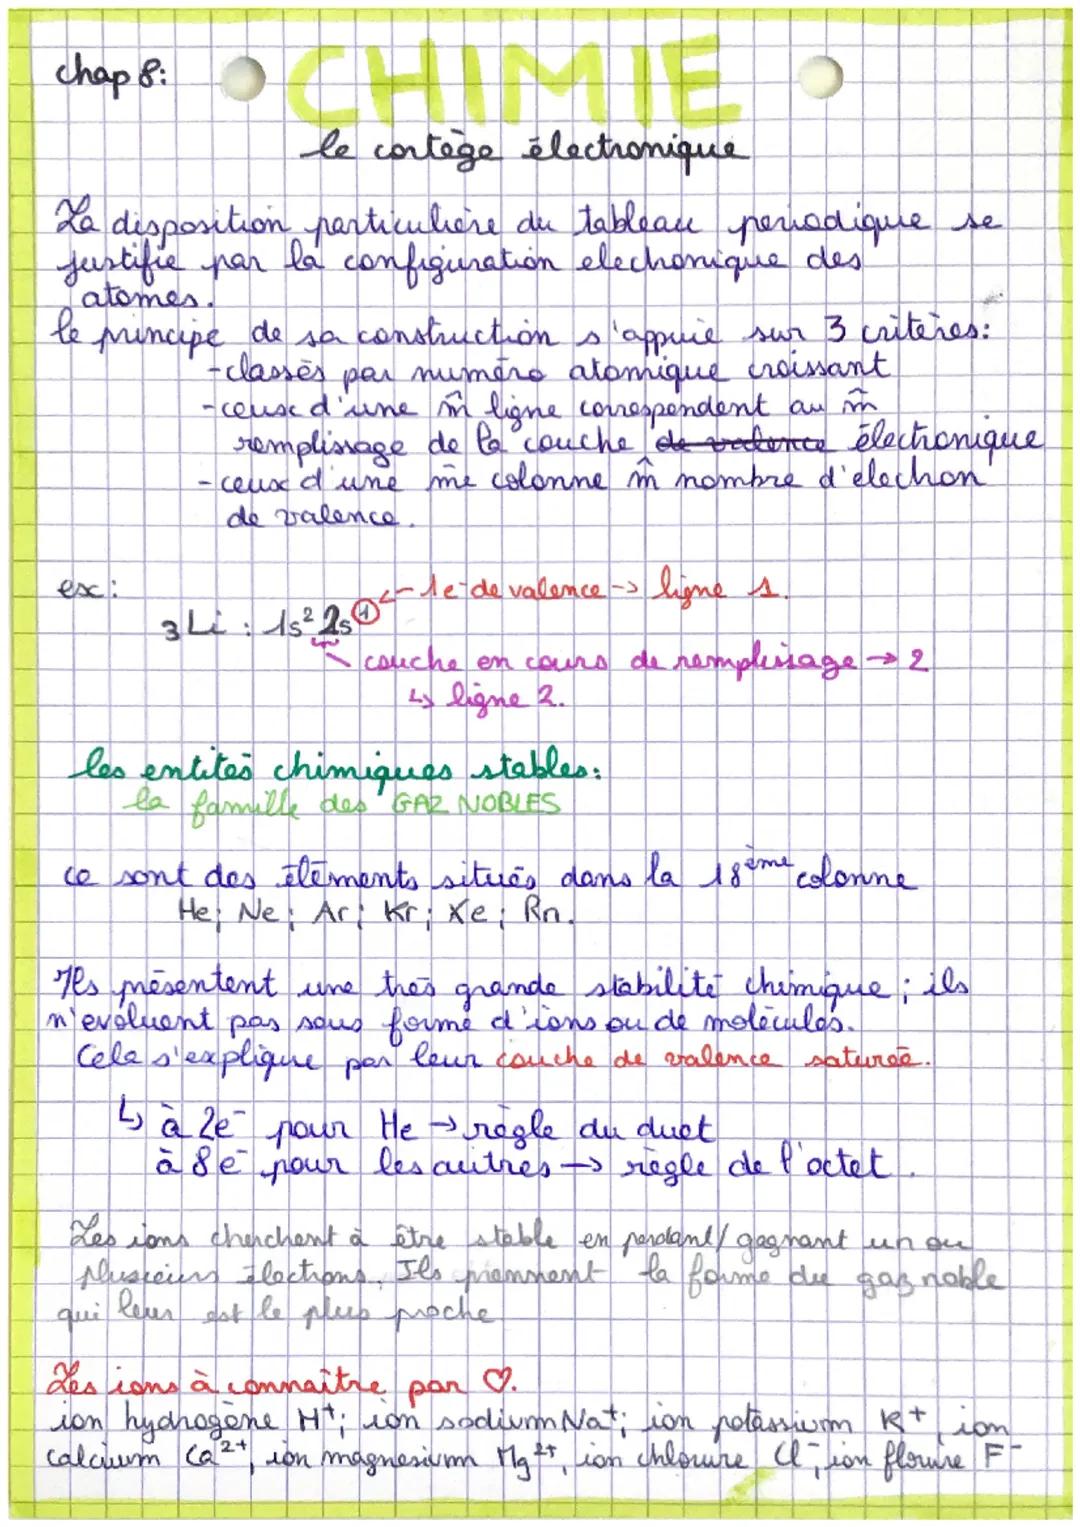 chap 8:
CHIMIE
le cortège électronique
La disposition particulière du tableau periodique se
justifie par la configuration electronique des
atomes.
le principe de sa construction s'appuie sur 3 critères:
-classés par numéro atomique croissant
-ceux d'une m̂ ligne correspondent au m̂
remplissage de la couche de valence électronique
-ceux d'une me colonne m̂ nombre d'electron
de valence.
ex:
← 1e⁻ de valence → ligne 1.
₃Li : 1s² 2s¹
couche en cours de remplissage → 2
↳ ligne 2.
les entités chimiques stables:
la famille des GAZ NOBLES
ce sont des éléments situés dans la 18ème colonne
He; Ne; Ar; Kr; Xe; Rn.
Ils présentent une très grande stabilité chimique; ils
n'evoluent pas sous forme d'ions ou de molécules.
Cela s'explique par leur couche de valence saturée.
↳ à 2e⁻ pour He → règle du duet
à 8e⁻ pour les autres → règle de l'octet.
Les ions cherchent à être stable en perdant/gagnant un ou
plusieurs électrons. Ils prennent la forme du gaz noble
qui leur est le plus proche
Les ions à connaître par ♡.
ion hydrogène H⁺; ion sodium Na⁺; ion potassium K⁺, ion
calcium Ca²⁺, ion magnesium Mg²⁺, ion chlorure Cl⁻, ion florure F⁻